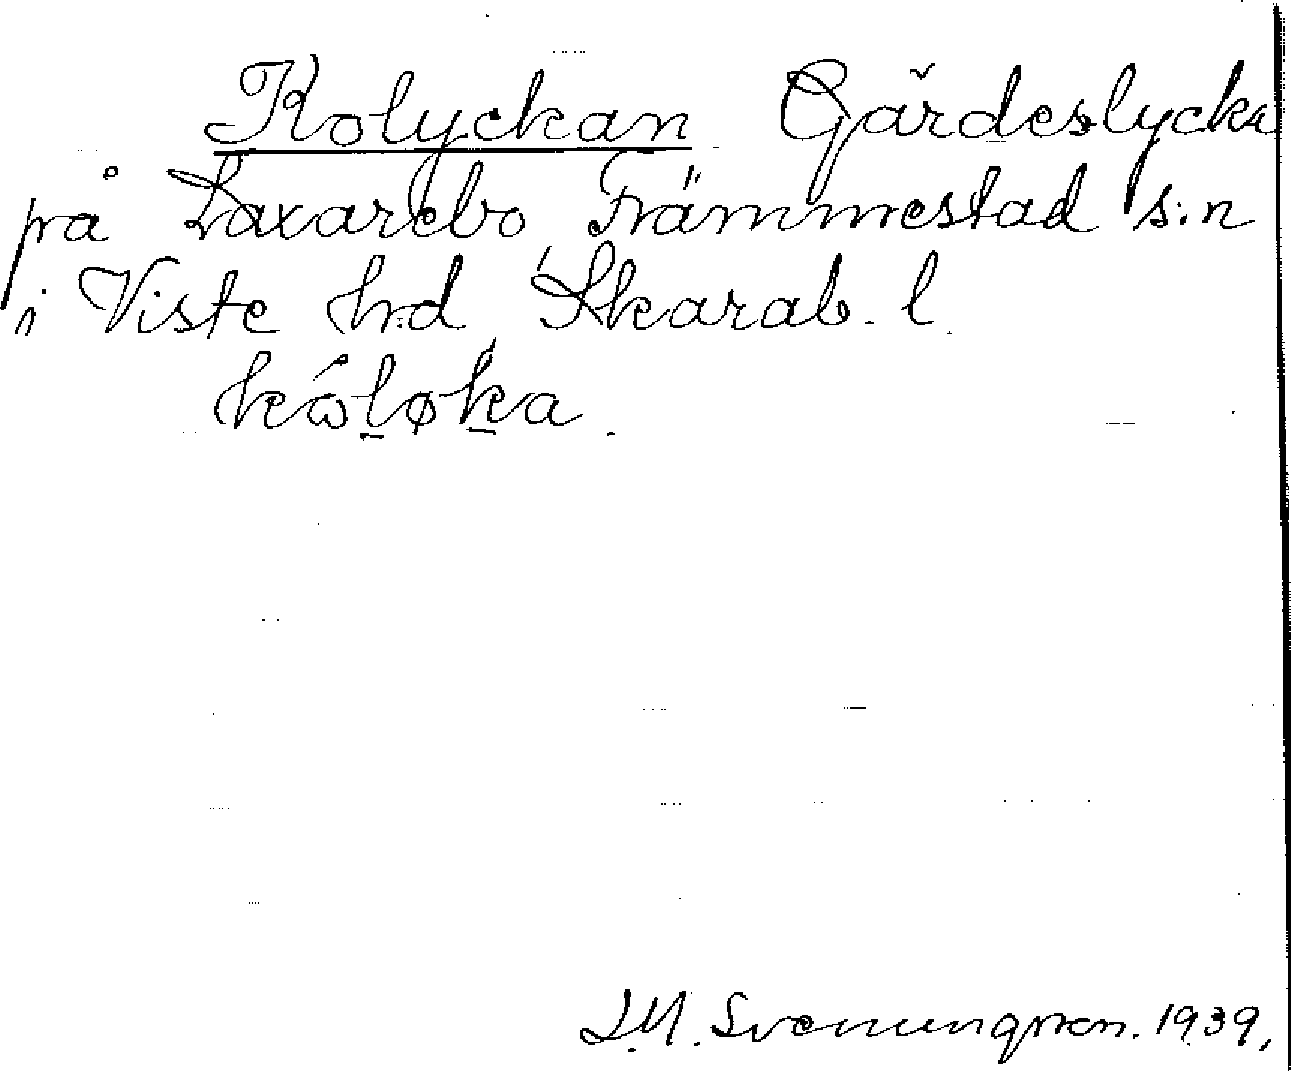 Kolyckan Gärdeslycka
på Laxarebo, Främmestad s:n
i Viste h:d Skarab. l.
kóloka.
J.M. Svenungsson. 1939,